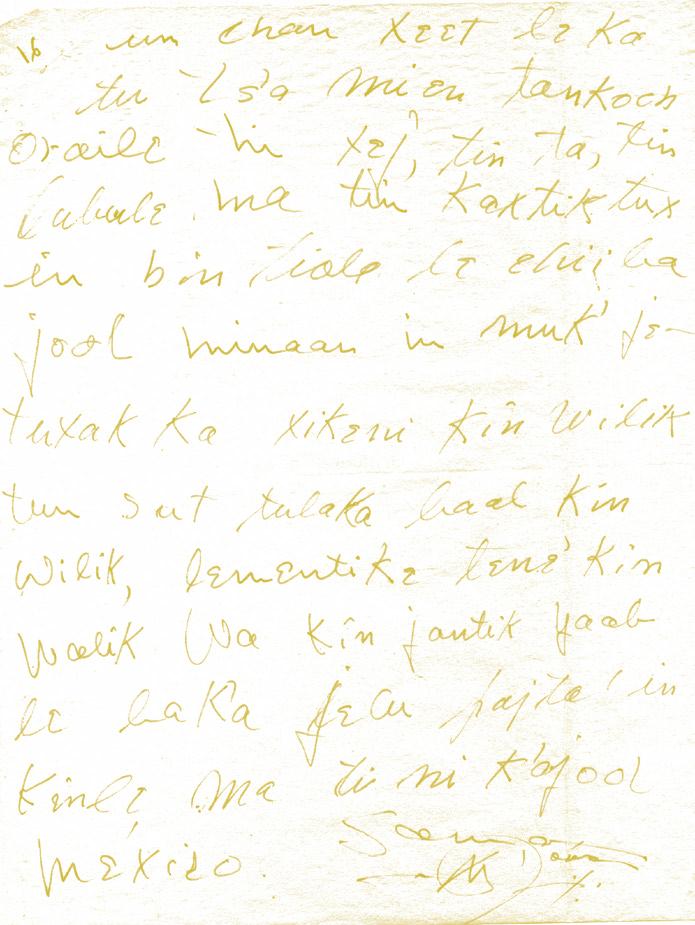 16 um chan xeet le ka
tu ts'a mien tankoch
oraile hin xej, tin ta, tin
lubule ma tin kaxtik tux
in bin tiole le chiiba
jool minaan in muk' je-
tuxak ka xikeni kin wilik
tun sut tulaka baal kin
wilik, lementike tene' kin
walik wa kin jantik yaab
le baka jelu pajta' in
kinle, ma ti ni k'ajool
México.